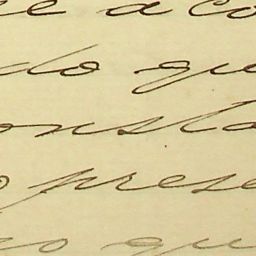 e a co
do que
onsta
o prese
go qu